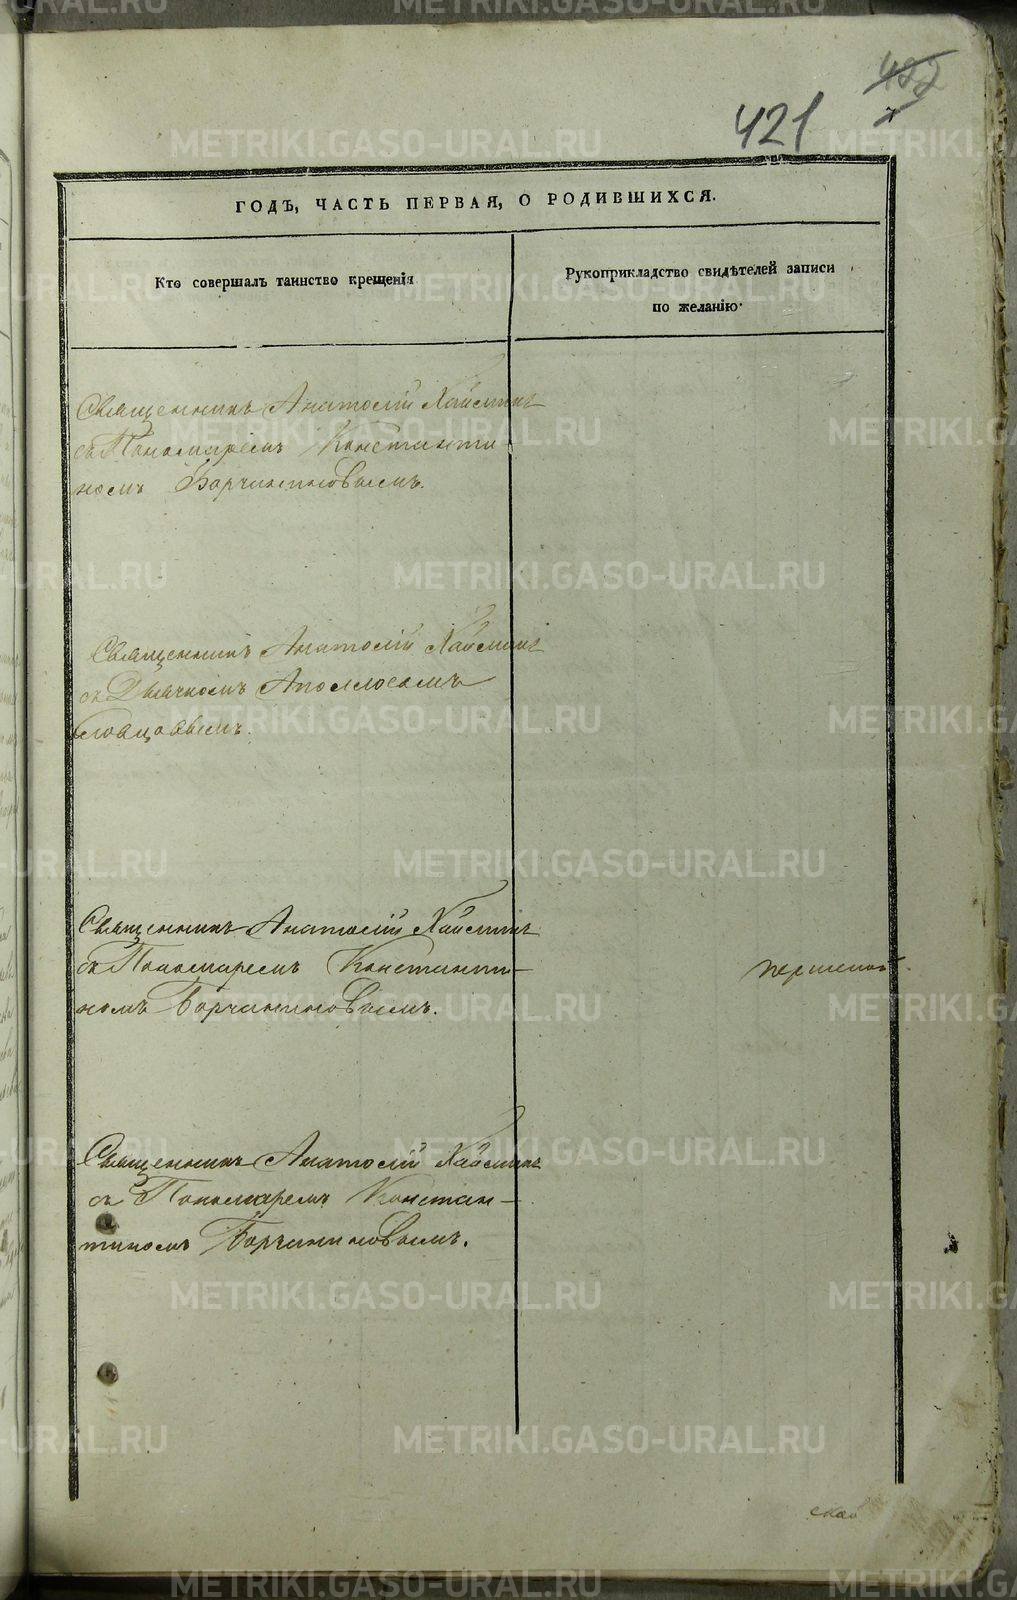 421
ГОДЪ, ЧАСТЬ ПЕРВАЯ, О РОДИВШИХСЯ.
Кто совершалъ таинство крещенія
Рукоприкладство свидѣтелей записи
по желанію.
Священникъ Анатолій Хайминъ
съ Пономаремъ Константи
номъ Борчаниновымъ.
Священникъ Анатолій Хайминъ
съ Дьячкомъ Аполлосомъ
Словцовымъ.
Священникъ Анатолій Хайминъ
съ Пономаремъ Константи-
номъ Борчаниновымъ.
Священникъ Анатолій Хайминъ
съ Пономаремъ Констан-
тиномъ Борчаниновымъ.
METRIKI.GASO-URAL.RU